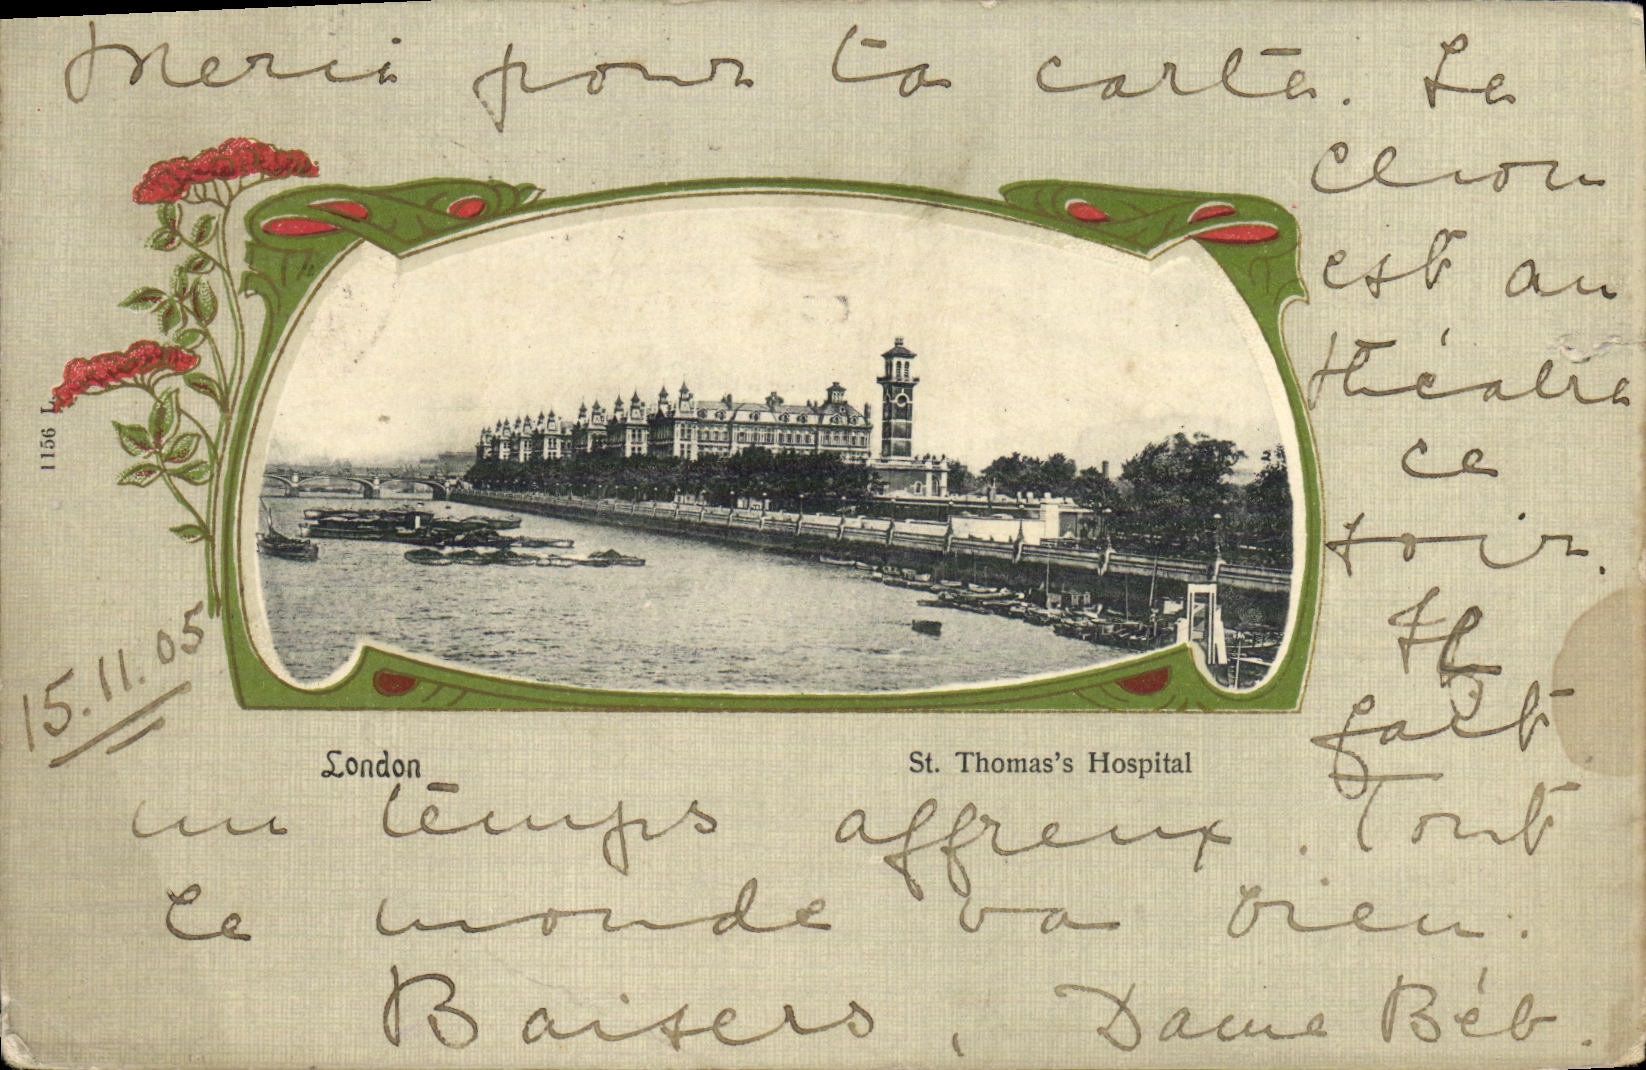 Merci pour ta carte. Le
est au
théatre
ce
soir.
Il
fait
1156 L.
15.11.05
London St. Thomas's Hospital
un temps affreux. Tout
le monde va bien.
Baisers, Dame Béb.